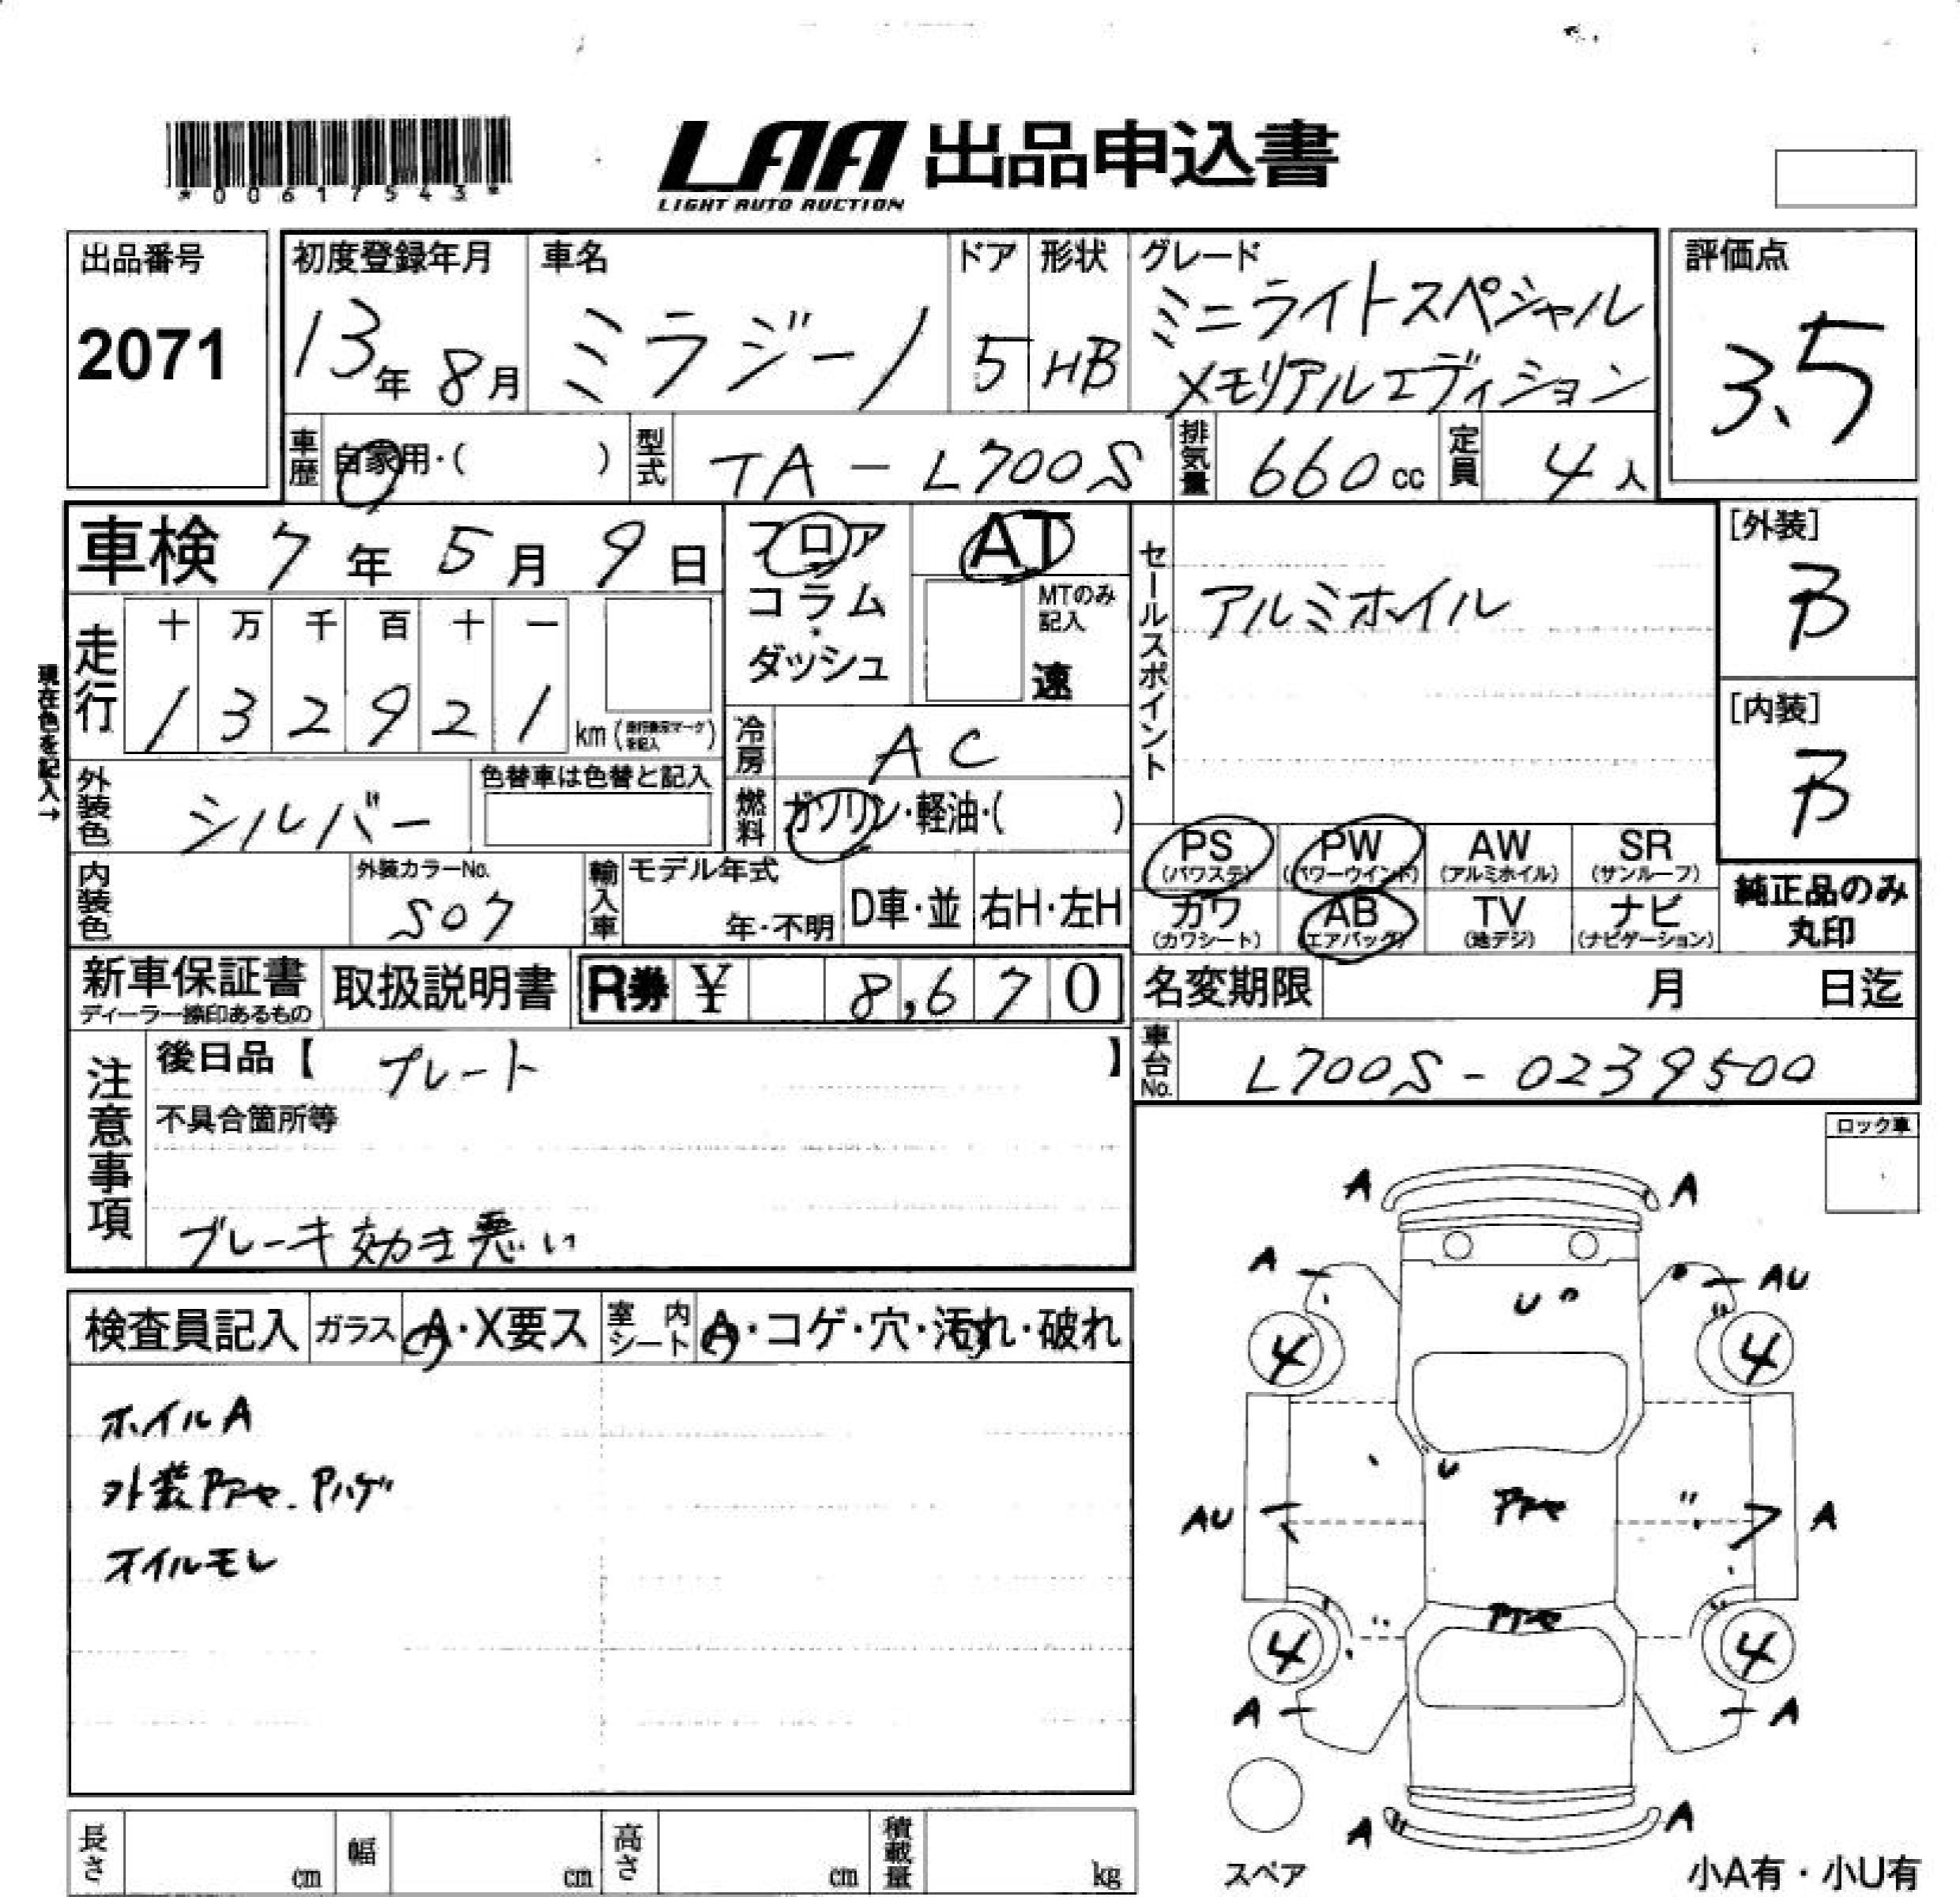 *00617543*
LAA 出品申込書
LIGHT AUTO AUCTION
出品番号
2071
初度登録年月
13年 8月
車名
ミラジーノ
ドア
5
形状
HB
グレード
ミニライトスペシャル
メモリアルエディション
評価点
3.5
車歴
自家用・( )
型式
TA-L700S
排気量
660cc
定員
4人
車検 7年 5月 9日
フロア
コラム
・
ダッシュ
AT
MTのみ
記入
速
セールスポイント
アルミホイル
[外装]
B
[内装]
B
現在色を記入→
走行
十 万 千 百 十 一
1 3 2 9 2 1
km
冷房
AC
外装色
シルバー
色替車は色替と記入
燃料
ガソリン・軽油・( )
内装色
外装カラーNo.
S07
輸入車
モデル年式
年・不明
D車・並
右H・左H
PS
(パワステ)
PW
(パワーウインド)
AW
(アルミホイル)
SR
(サンルーフ)
カワ
(カワシート)
AB
(エアバッグ)
TV
(地デジ)
ナビ
(ナビゲーション)
純正品のみ
丸印
新車保証書
ディーラー捺印あるもの
取扱説明書
R券 ¥ 8,670
名変期限 月 日迄
車台No.
L700S-0239500
注意事項
後日品【 プレート 】
不具合箇所等
ブレーキ効き悪い
ロック車
検査員記入
ガラス
A・X要ス
室内シート
A・コゲ・穴・汚れ・破れ
ホイルA
外装アアセ.Pハゲ
オイルモレ
A A
A AU
U
4 4
U
AU アアセ A
アアセ
4 4
A A
A A
スペア
小A有・小U有
長さ cm
幅 cm
高さ cm
積載量 kg